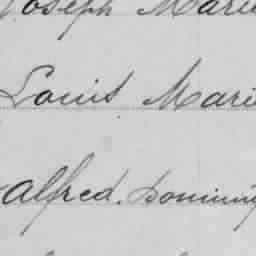 Joseph Marie
Louis Marie
Alfred. Dominiq